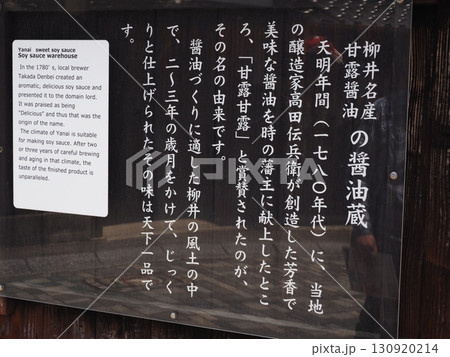 柳井名産
甘露醤油 の醤油蔵
天明年間（一七八〇年代）に、当地
の醸造家高田伝兵衛が創造した芳香で
美味な醤油を時の藩主に献上したとこ
ろ、「甘露甘露」と賞賛されたのが、
その名の由来です。
醤油づくりに適した柳井の風土の中
で、二～三年の歳月をかけて、じっく
りと仕上げられたその味は天下一品で
す。
Yanai sweet soy sauce
Soy sauce warehouse
In the 1780's, local brewer
Takada Denbei created an
aromatic, delicious soy sauce and
presented it to the domain lord.
It was praised as being
"Delicious" and thus that was the
origin of the name.
The climate of Yanai is suitable
for making soy sauce. After two
or three years of careful brewing
and aging in that climate, the
taste of the finished product is
unparalleled.
130920214